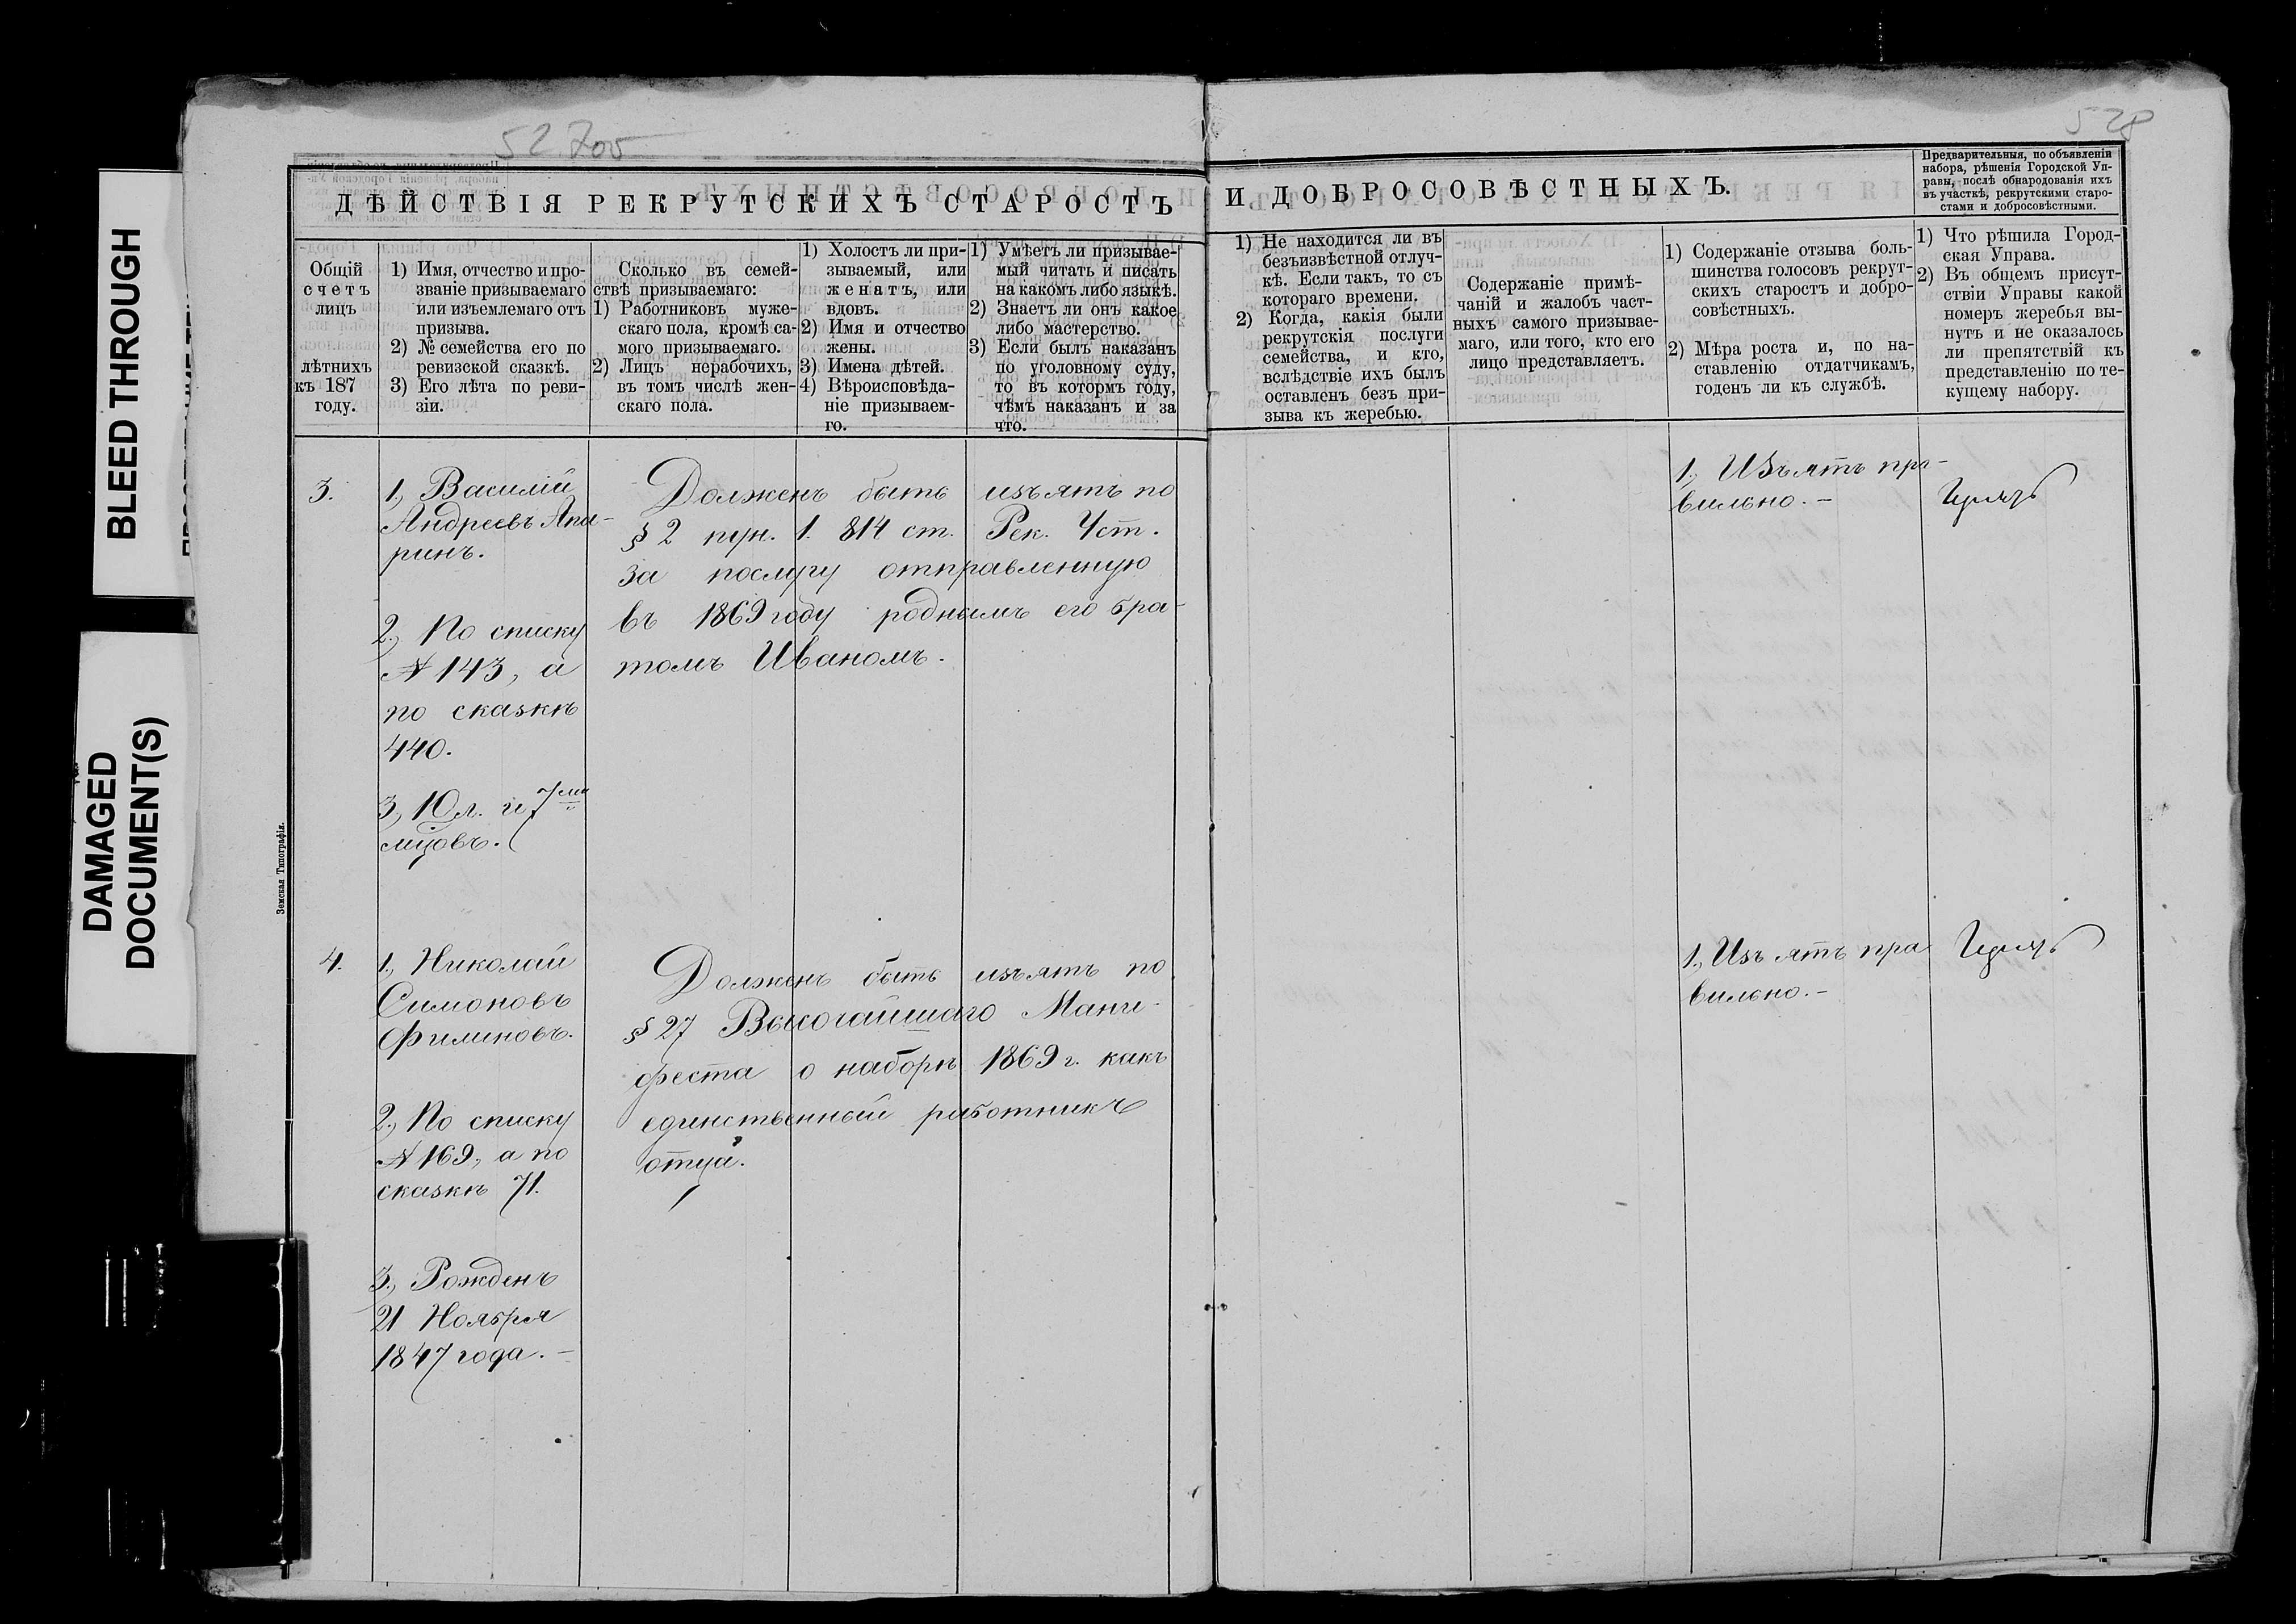 BLEED THROUGH
DAMAGED
DOCUMENT(S)
528
ДѢЙСТВІЯ РЕКРУТСКИХЪ СТАРОСТЪ
И ДОБРОСОВѢСТНЫХЪ.
Предварительныя, по объявленіи
набора, рѣшенія Городской Уп-
равы, послѣ обнародованія ихъ
въ участкѣ, рекрутскими старо-
стами и добросовѣстными.
Общій
счетъ
лицъ
лѣтнихъ
къ 187
году.
1) Имя, отчество и про-
званіе призываемаго
или изъемлемаго отъ
призыва.
2) № семейства его по
ревизской сказкѣ.
3) Его лѣта по реви-
зіи.
Сколько въ семей-
ствѣ призываемаго:
1) Работниковъ муже-
скаго пола, кромѣ са-
мого призываемаго.
2) Лицъ нерабочихъ,
въ томъ числѣ жен-
скаго пола.
1) Холостъ ли при-
зываемый, или
женатъ, или
вдовъ.
2) Имя и отчество
жены.
3) Имена дѣтей.
4) Вѣроисповѣда-
ніе призываем-
го.
1) Умѣетъ ли призывае-
мый читать и писать
на какомъ либо языкѣ.
2) Знаетъ ли онъ какое
либо мастерство.
3) Если былъ наказанъ
по уголовному суду,
то въ котормъ году,
чѣмъ наказанъ и за
что.
1) Не находится ли въ
безъизвѣстной отлуч-
кѣ. Если такъ, то съ
котораго времени.
2) Когда, какія были
рекрутскія послуги
семейства, и кто,
вслѣдствіе ихъ былъ
оставленъ безъ при-
зыва къ жеребью.
Содержаніе примѣ-
чаній и жалобъ част-
ныхъ самого призывае-
маго, или того, кто его
лицо представляетъ.
1) Содержаніе отзыва боль-
шинства голосовъ рекрут-
скихъ старостъ и добро-
совѣстныхъ.
2) Мѣра роста и, по на-
ставленію отдатчикамъ,
годенъ ли къ службѣ.
1) Что рѣшила Город-
ская Управа.
2) Въ общемъ присут-
ствіи Управы какой
номеръ жеребья вы-
нутъ и не оказалось
ли препятствій къ
представленію по те-
кущему набору.
3.
1., Василій
Андреевъ Апа-
ринъ.
2., По списку
№ 143, а
по сказкѣ
440.
3, 10 л. и 7ми
мцовъ.
Долженъ быть изъятъ по
§ 2 пун. 1. 814 ст. Рек. Уст.
за послугу отправленную
въ 1869 году роднымъ его бра-
томъ Иваномъ.
1., Изъятъ пра-
вильно. —
4.
1., Николай
Симоновъ
Филиновъ.
2., По списку
№ 169, а по
сказкѣ 71.
3., Рожденъ
21 Ноября
1847 года. —
Долженъ быть изъятъ по
§ 27 Высочайшаго Мани-
феста о наборѣ 1869 г. какъ
единственный работникъ
отца.
1., Изъятъ пра
вильно. —
Земская Типографія.